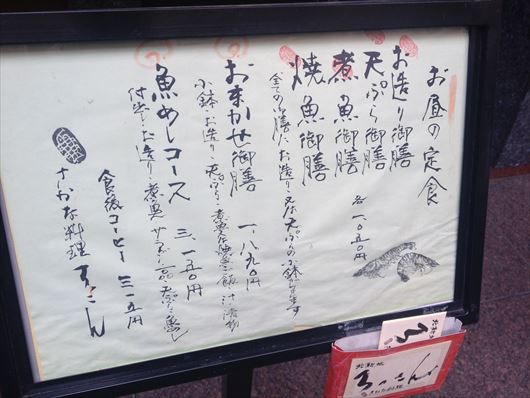 お昼の定食
お造り御膳
天ぷら御膳
煮魚御膳
焼魚御膳
各一、〇五〇円
全ての御膳にお造り又は天ぷらの小鉢付きます
おまかせ御膳 一、八九〇円
小鉢、お造り、天ぷら、煮魚又は焼魚、ご飯、汁、漬物
魚めしコース 三、一五〇円
付出し、お造り、煮魚
食後コーヒー 三一五円
さかな料理